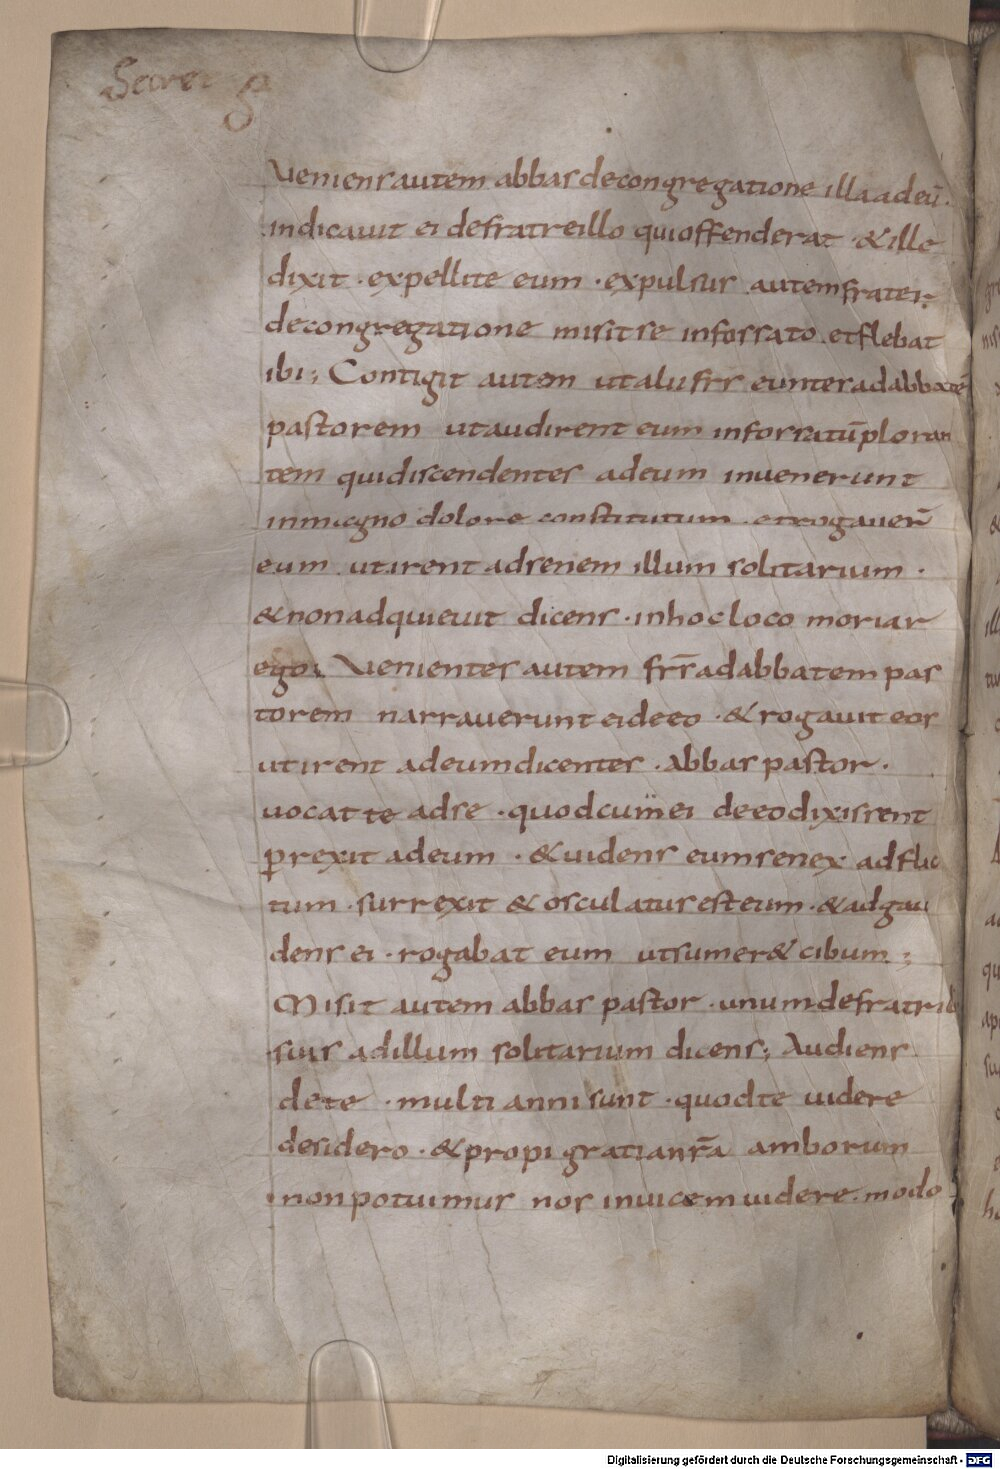 Secret 8
Ueniens autem abbas de congregatione illa ad eū·
indicauit ei de fratre illo qui offenderat · & ille
dixit · expellite eum · expulsus autem frater
de congregatione misit se in fossato et flebat
ibi; Contigit autem ut alii frs euntes ad abbatē
pastorem ut audirent eum in fossatū ploran
tem qui discendentes ad eum inuenerunt
in magno dolore constitutum · et rogauer̄
eum ut irent ad senem illum solitarium ·
& non adquieuit dicens · in hoc loco moriar
ego; Uenientes autem fr̄s ad abbatem pas
torem narrauerunt ei de eo · & rogauit eos
ut irent ad eum dicentes · abbas pastor ·
uocat te ad se · quod cum ei de eo dixissent
ꝑrexit ad eum · & uidens eum senex adflic
tum · surrexit & osculatus est eum · & adgau
dens ei · rogabat eum ut sumer& cibum ;
Misit autem abbas pastor · unum de fratrib
suis ad illum solitarium dicens; Audiens
de te · multi anni sunt · quod te uidere
desidero · & propi gratia nr̄a amborum
non potuimus nos inuicem uidere · modo
Digitalisierung gefördert durch die Deutsche Forschungsgemeinschaft - DFG